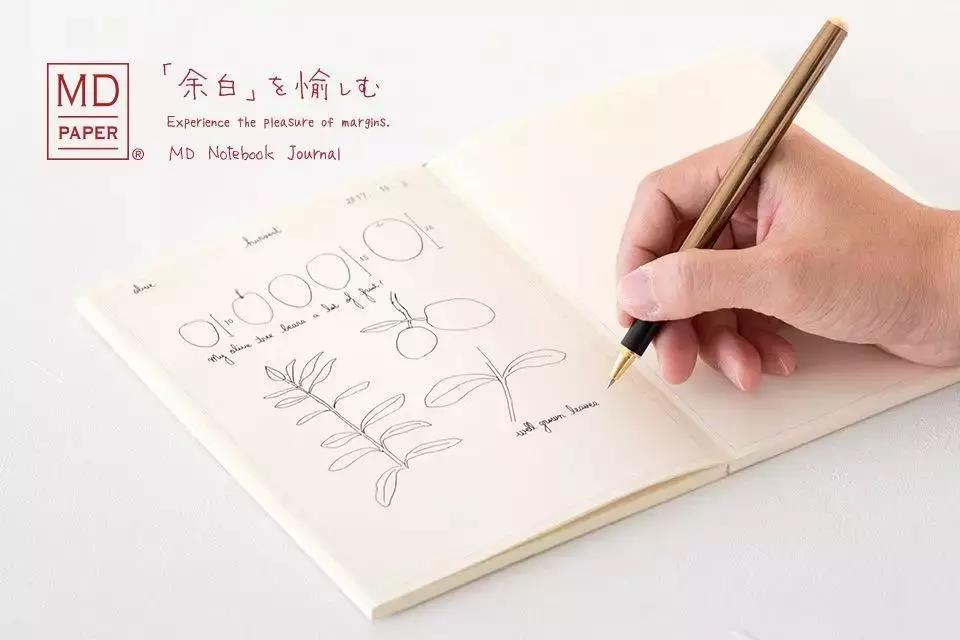 MD
PAPER
®
「余白」を愉しむ
Experience the pleasure of margins.
MD Notebook Journal
2017 10
harvest
olive
10
15
20
My olive tree bears a lot of fruit!
well grown leaves